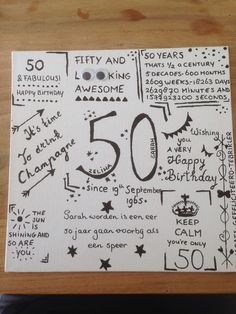 50
& FABULOUS!
HAPPY BIRTHDAY
FIFTY AND
LOOKING
AWESOME
50 YEARS
THATS 1/2 A CENTURY
5 DECADES-600 MONTHS
2609 WEEKS-18263 DAYS
It's time
To drink
Champagne
50
SELINA
SARAH
since 19th September
1965
Wishing
you A
VERY
Happy
Birthday
THE
SUN
IS
SHINING AND
SO ARE
you.
Sarah worden is een eer
50 jaar gaan voorbij als
een speer
KEEP
CALM
YOU'RE ONLY
50